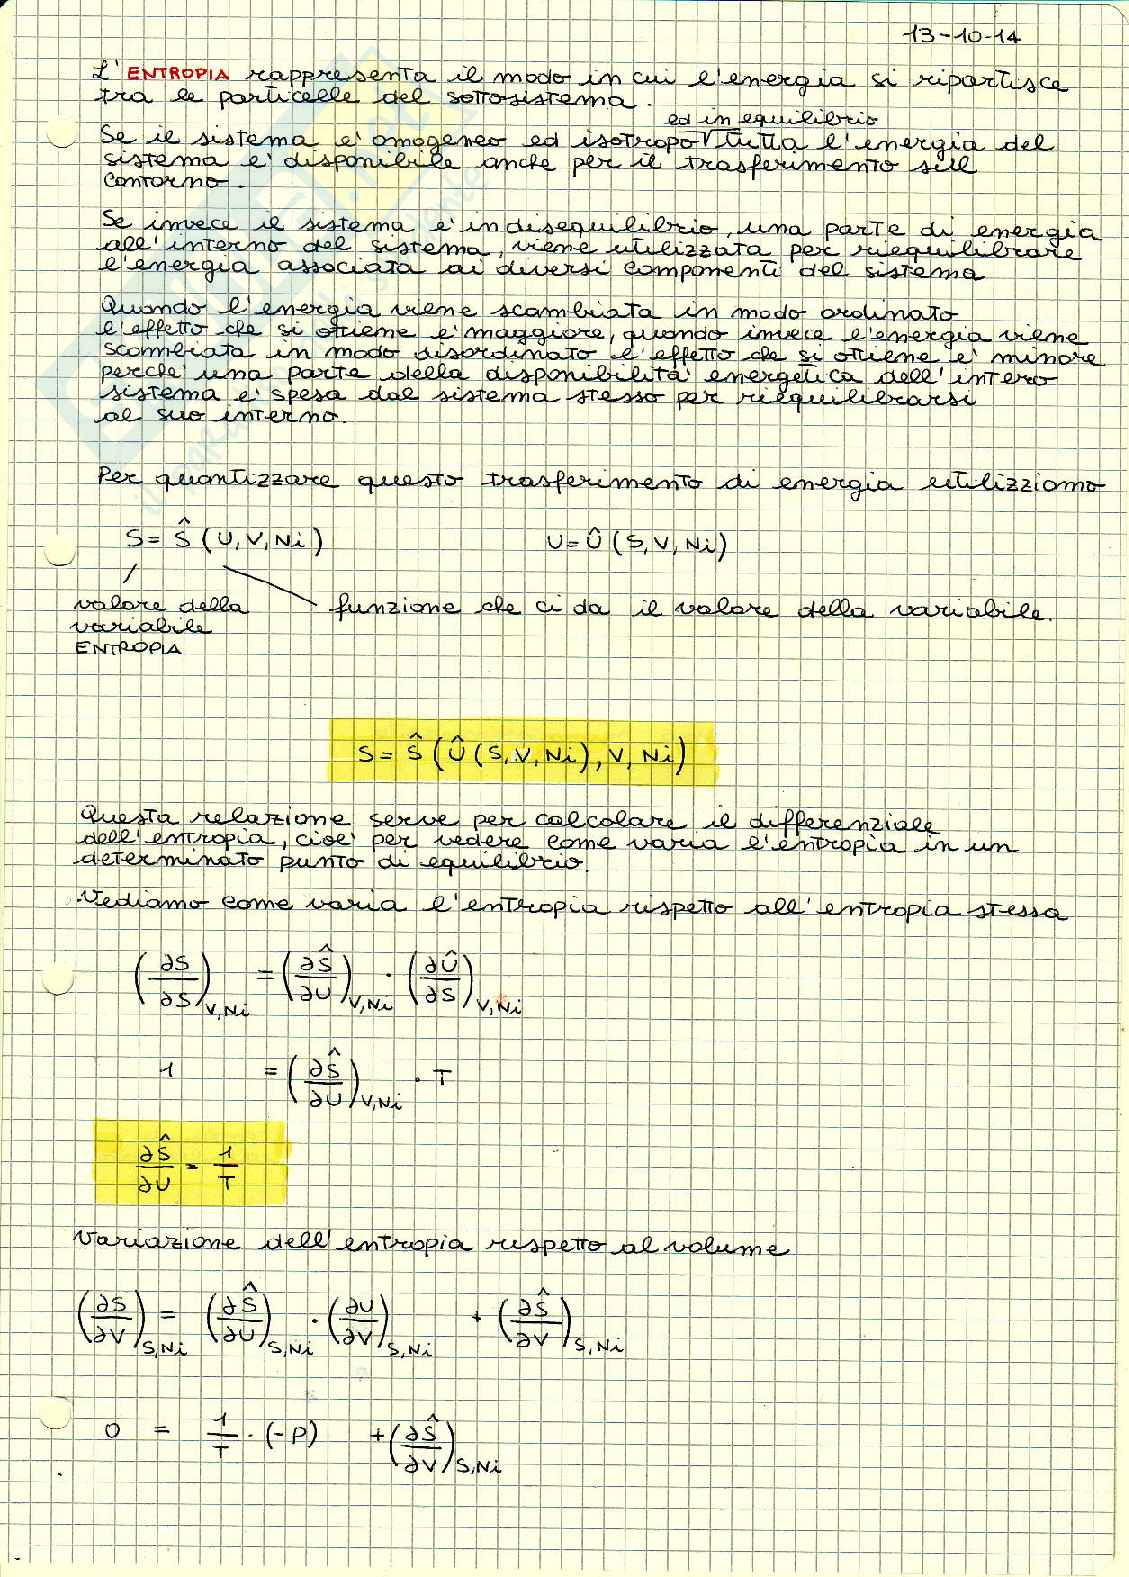 13-10-14
L'ENTROPIA rappresenta il modo in cui l'energia si ripartisce
tra le particelle del sottosistema.
ed in equilibrio
Se il sistema e' omogeneo ed isotropo tutta l'energia del
sistema e' disponibile anche per il trasferimento sul
contorno.
Se invece il sistema e' in disequilibrio, una parte di energia
all'interno del sistema, viene utilizzata per riequilibrare
l'energia associata ai diversi componenti del sistema
Quando l'energia viene scambiata in modo ordinato
l'effetto che si ottiene e' maggiore, quando invece l'energia viene
scambiata in modo disordinato l'effetto che si ottiene e' minore
perche' una parte della disponibilita' energetica dell'intero
sistema e' spesa dal sistema stesso per riequilibrarsi
al suo interno.
Per quantizzare questo trasferimento di energia utilizziamo
S = Ŝ (U, V, Ni)    U = Û (S, V, Ni)
valore della variabile ENTROPIA
funzione che ci da il valore della variabile.
S = Ŝ (Û (S, V, Ni), V, Ni)
Questa relazione serve per calcolare il differenziale
dell'entropia, cioe' per vedere come varia l'entropia in un
determinato punto di equilibrio.
Vediamo come varia l'entropia rispetto all'entropia stessa
(∂S/∂S)V,Ni = (∂Ŝ/∂U)V,Ni · (∂Û/∂S)V,Ni
1 = (∂Ŝ/∂U)V,Ni · T
∂Ŝ/∂U = 1/T
Variazione dell'entropia rispetto al volume
(∂S/∂V)S,Ni = (∂Ŝ/∂U)S,Ni · (∂U/∂V)S,Ni + (∂Ŝ/∂V)S,Ni
0 = 1/T · (-P) + (∂Ŝ/∂V)S,Ni